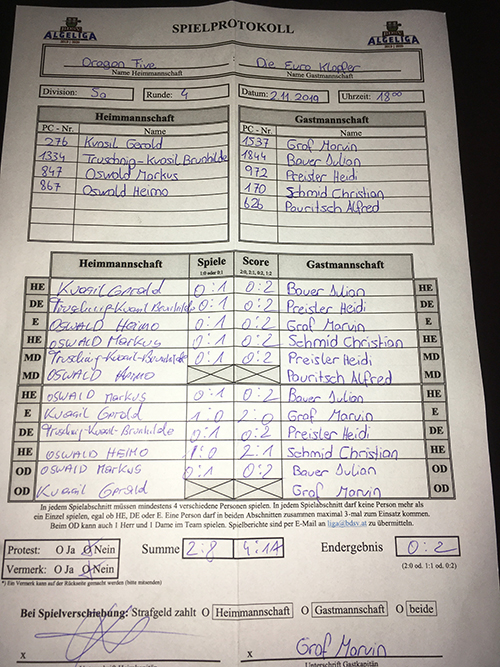 ALGELIGA SPIELPROTOKOLL ALGELIGA
Dragon Five Die Euro Klopfer
Name Heimmannschaft Name Gastmannschaft
Division: 5a Runde: 4 Datum: 2.11.2019 Uhrzeit: 18⁰⁰
Heimmannschaft Gastmannschaft
PC - Nr. Name PC - Nr. Name
276 Kvasil Gerald 1537 Graf Marvin
1334 Truschnig-Kvasil Brunhilde 1844 Bauer Julian
847 Oswald Markus 972 Preisler Heidi
867 Oswald Heimo 170 Schmid Christian
626 Pauritsch Alfred
Heimmannschaft Spiele Score Gastmannschaft
1:0 oder 0:1 2:0, 2:1, 0:2, 1:2
HE Kvasil Gerald 0:1 0:2 Bauer Julian HE
DE Truschnig-Kvasil Brunhilde 0:1 0:2 Preisler Heidi DE
E OSWALD HEIMO 0:1 0:2 Graf Marvin E
HE OSWALD MARKUS 0:1 0:2 Schmid Christian HE
MD Truschnig-Kvasil-Brunhilde 0:1 0:2 Preisler Heidi MD
MD OSWALD HEIMO Pauritsch Alfred MD
HE OSWALD MARKUS 0:1 0:2 Bauer Julian HE
E Kvasil Gerald 1:0 2:0 Graf Marvin E
DE Truschnig-Kvasil-Brunhilde 0:1 0:2 Preisler Heidi DE
HE OSWALD HEIMO 1:0 2:1 Schmid Christian HE
OD OSWALD Markus 0:1 0:2 Bauer Julian OD
OD Kvasil Gerald Graf Marvin OD
In jedem Spielabschnitt müssen mindestens 4 verschiedene Personen spielen. In jedem Spielabschnitt darf keine Person mehr als
ein Einzel spielen, egal ob HE, DE oder E. Eine Person darf in beiden Abschnitten zusammen maximal 3-mal zum Einsatz kommen.
Beim OD kann auch 1 Herr und 1 Dame im Team spielen. Spielberichte sind per E-Mail an liga@bdsv.at zu übermitteln.
Protest: O Ja O Nein Summe 2:8 4:17 Endergebnis 0:2
Vermerk: O Ja O Nein (2:0 od. 1:1 od. 0:2)
*) Ein Vermerk kann auf der Rückseite gemacht werden (bitte mitsenden)
Bei Spielverschiebung: Strafgeld zahlt O Heimmannschaft O Gastmannschaft O beide
x x Graf Marvin
Unterschrift Heimkapitän Unterschrift Gastkapitän